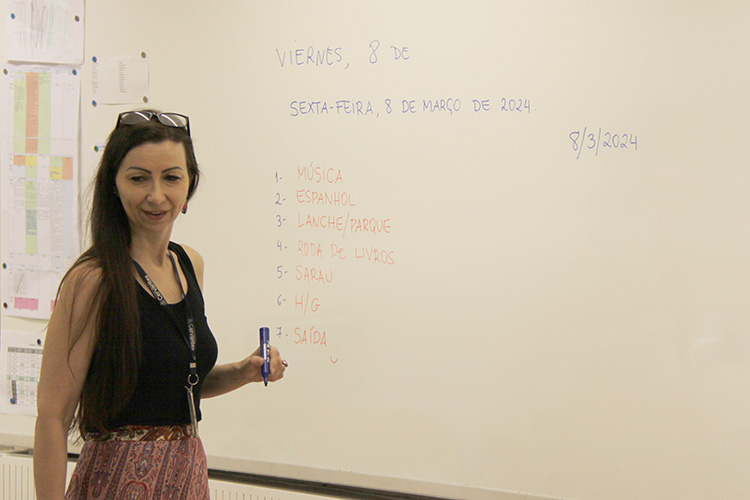 VIERNES, 8 DE
SEXTA-FEIRA, 8 DE MARÇO DE 2024.
8/3/2024
1- MÚSICA
2- ESPANHOL
3- LANCHE/PARQUE
4- RODA DE LIVROS
5- SARAU
6- H/G
7- SAÍDA